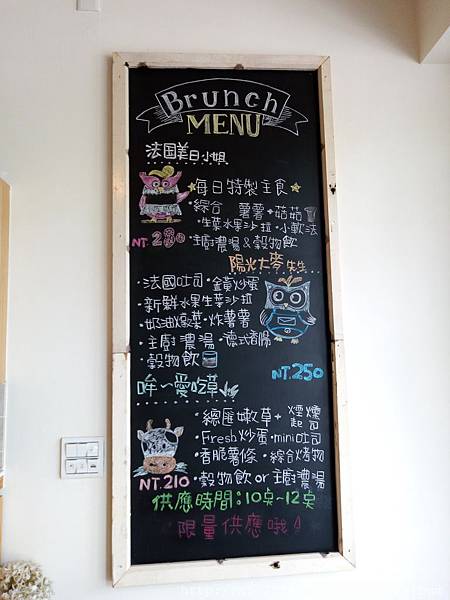 Brunch
MENU
法国美日小姐
★每日特製主食★
・綜合 薯薯+菇菇
・生菜水果沙拉・小軟法
NT.280 ・主廚濃湯&穀物飲
陽光大麥先生
・法國吐司・金黃炒蛋
・新鮮水果生菜沙拉
・奶油燉菜・炸薯薯
・主廚濃湯・德式香腸
・穀物飲
NT.250
哞~愛吃草
・總匯嫩草+煙燻起司
・Fresh炒蛋・mini吐司
・香脆薯條・綜合烤物
NT.210 ・穀物飲 or 主廚濃湯
供應時間:10点~12点
限量供應哦!